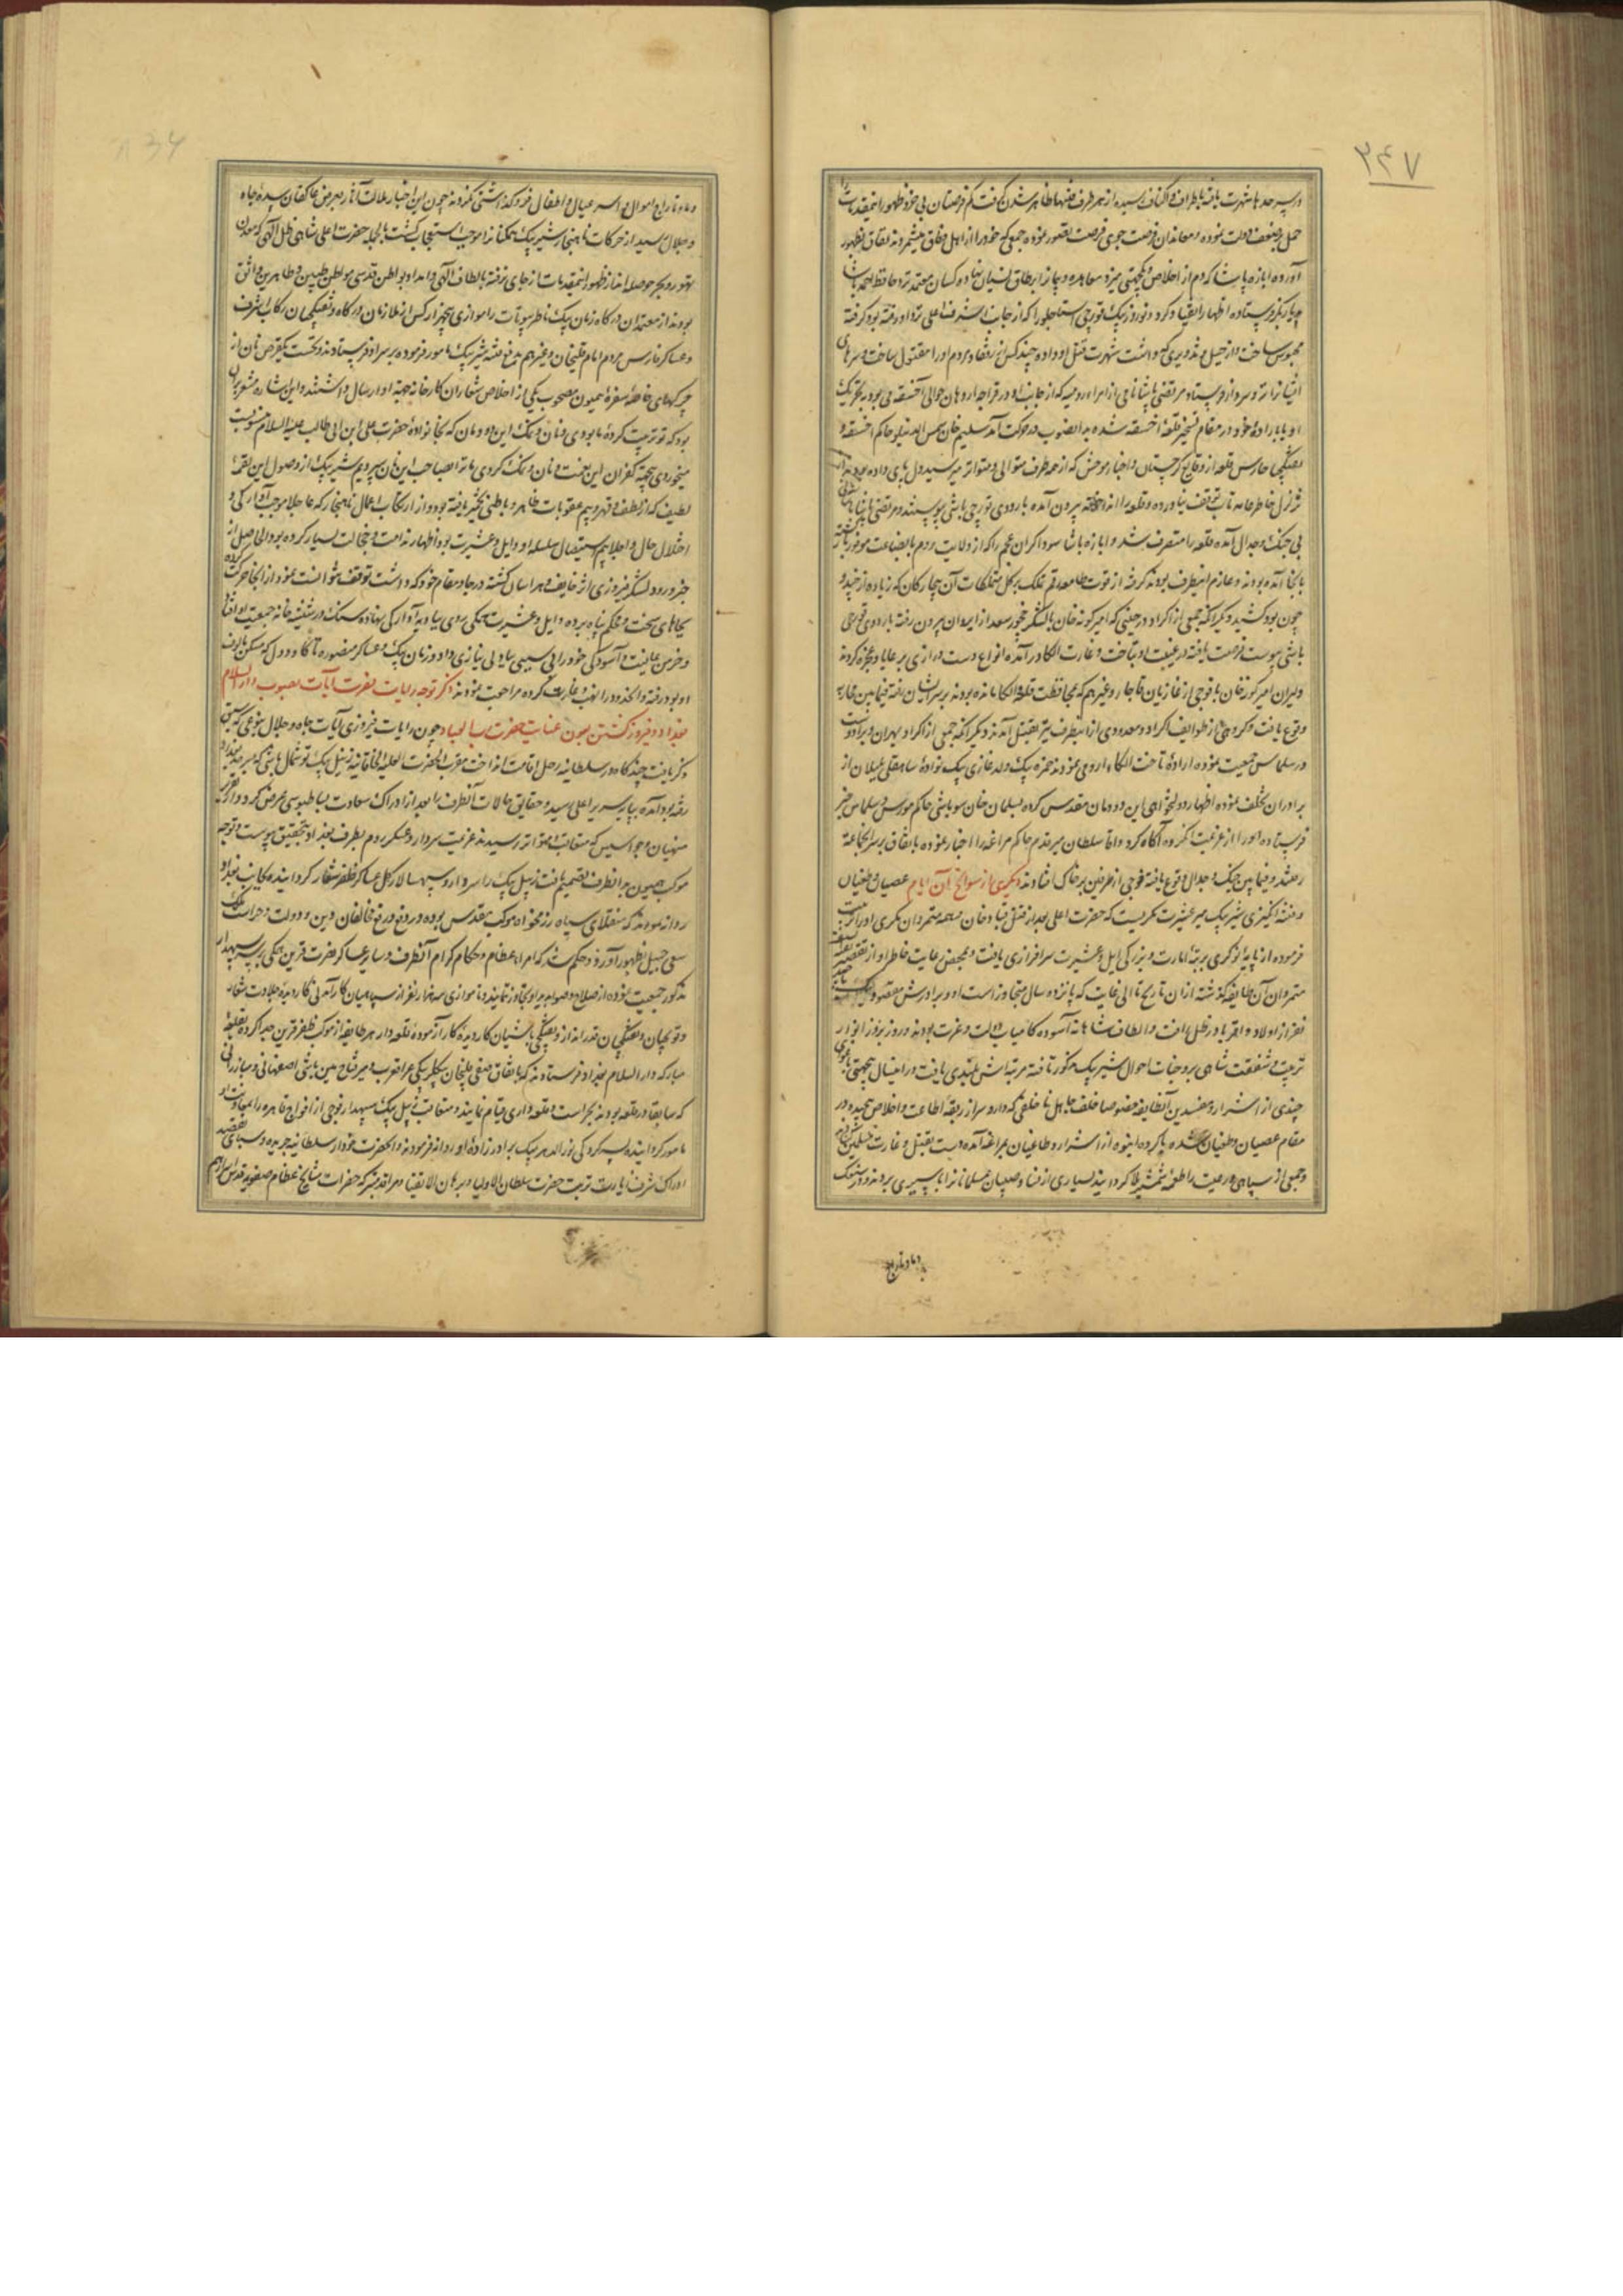 ۲۴۷
در سرحدها شهرت یافته باطراف و اکناف رسیده از هر طرف فتنها ظاهر شدن گرفت کم فرصتان بی‌خرد ظهور اینمقدمات را
حمل بر ضعف دولت نموده معاندان فرصت جوی فرصت تصور نموده جمعی که خود را از اهل وفاق میشمردند نفاق بظهور
آورده ابازه پاشا که دم از اخلاص و یکجهتی میزد معاهده و پیمان را بر طاق نسیان نهاده کسان معتمد نزد حافظ احمد پاشا
بدیاربکر فرستاده اظهار انقیاد کرد و نوروز بیک قورچی استاجلو را که از جانب اشرف اعلی نزد او رفته بود گرفته
محبوس ساخت و از حیل و تذویری که داشت شهرت قتل او داده چند کس از رفقاء و مردم او را مقتول ساخت و سرهای
ایشانرا نزد سردار فرستاد مرتضی پاشا نامی از امراء رومیه که از جانب او در قراجه اردهان حوالی آخسقه می‌بود بتحریک
او یا باراده خود در مقام تسخیر قلعه اخسقه شده بدانصوب در حرکت آمد سلیم خان شمس الدینلو حاکم اخسقه و
تفنگچیان حارس قلعه از وقایع گرجستان و اخبار موحش که از همه طرف متوالی و متواتر میرسید دل بپای داده بودند از
تزلزل خاطر تاب توقف نیاورده و قلعه را انداخته بیرون آمده باردوی قورچی باشی پیوستند و مرتضی پاشا
بی جنگ و جدال آمده قلعه را متصرف شد و ابازه پاشا سوداگران عجم را که از ولایت روم با بضاعت موفور
بآنجا آمده بودند و عازم اینطرف بودند گرفته از قوت طامعه رقم تملک بر کل متملکات آن بیچارگان که زیاده از حد و
چون بود کشید دیگر آنکه جمعی از اکراد در حینی که امیرگونه خان با لشکر چخور سعد از ایروان بیرون رفته باردوی قورچی
باشی پیوست فرصت یافته در غیبت او بتاخت و غارت الکا در آمده انواع دست درازی بر رعایا و عجزه کردند
و پسران امیرگونه خان با فوجی از غازیان قاجار و غیرهم که بمحافظت قلعه و الکا مانده بودند بر سر ایشان رفته فیمابین محاربه
وقوع یافت و گروهی از طوایف اکراد و معدودی از اینطرف نیز بقتل آمدند دیگر آنکه جمعی از اکراد
در سلماس جمعیت نموده اراده تاخت الکاء ارومی نمودند حمزه بیک ولد غازی بیک نواده شاهقلی بلیلان از
برادران تخلف نموده اظهار دولتخواهی این دودمان مقدس کرده بسلمان خان سوباشی حاکم خوی و سلماس خبر
فرستاده او را از عزیمت آن گروه آگاه کرد و آقا سلطان میر مقدم حاکم مراغه را اخبار نموده باتفاق بر سر آنجماعه
رفتند و فیمابین جنگ و جدال وقوع یافته فوجی از طرفین بر خاک افتادند دیگری از سوانح آن ایام عصیان و طغیان
و فتنه انگیزی شیر بیک میر عشیرت مکریست که حضرت اعلی بعد از قتل قباد خان و همه متمردان مکری او را تربیت
فرموده از پایه نوکری برتبه امارت و بزرگی ایل و عشیرت سرافرازی یافت و بمحض رعایت خاطر او از تقصیر بقیه
متمردان آن طایفه گذشته از آن تاریخ تا الی غایت که پانزده سال متجاوز است او و برادرش مقصود
نفر از اولاد و اقربا در ظل رأفت و الطاف شاهانه آسوده کامیاب دولت و عزت بودند و روز بروز انوار
تربیت و شفقت شاهی بر وجنات احوال شیر بیک مذکور تافته مرتبه اش بلندی یافت در اینسال
چندی از اشرار و مفسدین آنطایفه خصوصا خلف جاهل ناخلفی که دارد سر از ربقه اطاعت و اخلاص پیچیده در
مقام عصیان و طغیان شده با گروه انبوه از اشرار و طاغیان بمراغه آمده دست بقتل و غارت مسلمین
و جمعی از سپاهی و رعیت را طعمه شمشیر بلا گردانیده بسیاری از نساء و صبیان مسلمانان را باسیری بردند و در سفک
دماء و تاراج
دماء و تاراج اموال و اسر عیال و اطفال فروگذاشتی نکردند چون این اخبار ملالت آثار بعرض عاکفان سده جاه
و جلال رسید از حرکات ناهنجار شیر بیک همگنانرا موجب استعجاب گشت بالجمله حضرت اعلی شاهی ظل اللهی که معدن
تهور و بحر حوصله‌اند از ظهور اینمقدمات از جای نرفته بالطاف الهی و امداد بواطن قدسی مواطن طیبین و طاهرین واثق
بودند از معتمدان درگاه زمان بیک ناظر بیوتات را با موازی پنجهزار کس از ملازمان درگاه و تفنگچیان رکاب اشرف
و عساکر فارس مردم امام قلیخان و غیرهم بدفع فتنه شیر بیک مامور فرموده بر سر او فرستادند و نخست یکقرص نان از
چرکهای خاصه سفره همیون مصحوب یکی از اخلاص شعاران کارخانه جهة او ارسال داشتند و این اشاره مشعر بران
بود که تو تربیت کرده ما بودی و نان و نمک این دودمان که بخانواده حضرت علی ابن ابی طالب علیه السلام منسوبست
میخوردی بجهة کفران این نعمت و نان و نمک که کردی ما ترا بصاحب این نان سپردیم شیر بیک از وصول این لقمه
لطیف که از لطف و قهر و بیم عقوبات ظاهر و باطنی تخمیر یافته بود و از ارتکاب اعمال ناهنجار که عاجلا موجب آوارگی و
اختلال حال و اجلا بیم استیصال سلسله او و ایل و عشیرت بود اظهار ندامت و خجالت بسیار کرده بود الحاصل از
خبر ورود لشکر فیروزی اثر خایف و هراسان گشته در جا و مقام خود که داشت توقف نتوانست نمود از آنجا حرکت کرده
بجاهای سخت و محکم پناه برده و ایل و عشیرت همگی روی ببادیه آوارگی نهاده سنگ در شیشه خانه جمعیت او افتاد
و خرمن عافیت و آسودگی خود را بی سببی بباد بی نیازی داد و زمان بیک و عساکر منصوره تا کاودول که مسکن و مأوای
او بود رفته و الکند و را نهب و غارت کرده مراجعت نمودند ذکر توجه رایات نصرت آیات بصوب دار السلام
بغداد و فیروز گشتن بیمن عنایت حضرت رب العباد چون رایات فیروزی آیات جاه و جلال بنوعی که سبق
ذکر یافت چند گاه در سلطانیه رحل اقامت انداخت مقرب الحضرت العلیه الخاقانیه زینل بیک توشمال باشی که بسرحد بغداد
رفته بود آمده بپایه سریر اعلی رسید و حقایق حالات آنطرف را بعد از ادراک سعادت بساطبوسی عرض کرد و از تقریر
منهیان و جواسیس که متعاقب و متواتر رسیدند عزیمت سردار و عسکر روم بطرف بغداد بتحقیق پیوست و توجه
موکب همیون بدانطرف تصمیم یافت زینل بیک را سردار و سپهسالار کل عساکر ظفر شعار گردانیده بجانب بغداد
روانه نمودند که منقلای سپاه رزمخواه موکب مقدس بوده در دفع و رفع مخالفان دین و دولت و حراست ملک
سعی جمیل بظهور آورد و حکم شد که امراء عظام و حکام کرام آنطرف و سایر عساکر نصرت قرین همگی بر سر سپهدار
مذکور جمعیت نموده از صلاح و صوابدید او تجاوز ننمایند و با موازی سه هزار نفر از سپاهیان کارآمدنی کاردیده جلادت شعار
و توپچیان و تفنگچیان قدرانداز و تفنگچی باشیان کاردیده کارآزموده قلعه دار هر طایفه از موکب ظفر قرین جدا کرده بقلعه
مبارکه دار السلام بغداد فرستادند که باتفاق صفی قلیخان بیگلربیگی عراق عرب و میر فتاح مین باشی اصفهانی و سایر
که سابقا در قلعه بودند بحراست و قلعه داری قیام نمایند و متعاقب زینل بیک سپهدار فوجی از افواج قاهره را بمعاونت او
مامور گردانیده بسرکردگی نور الدهر بیک برادرزاده او روانه فرمودند و آنحضرت خود از سلطانیه جریده و سبکبای بقصد
ادراک شرف زیارت تربت حضرت سلطان الاولیاء و برهان الاتقیاء و مراقد متبرکه حضرات مشایخ عظام صفویه قدس اسرارهم